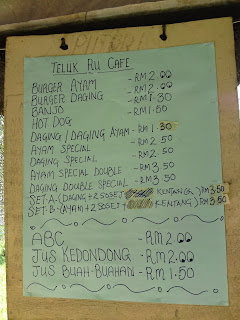 TELUK RU CAFE
BURGER AYAM - RM 2.00
BURGER DAGING - RM 2.00
BANJO - RM 1.30
HOT DOG - RM 1.50
DAGING / DAGING AYAM - RM 1.30
AYAM SPECIAL - RM 2.50
DAGING SPECIAL - RM 2.50
AYAM SPECIAL DOUBLE - RM 3.50
DAGING DOUBLE SPECIAL - RM 3.50
SET-A-(DAGING + 2 SOSEJ + KENTANG) RM 3.50
SET-B-(AYAM + 2 SOSEJ + KENTANG) RM 3.50
ABC - RM 2.00
JUS KEDONDONG - RM 2.00
JUS BUAH-BUAHAN - RM 1.50